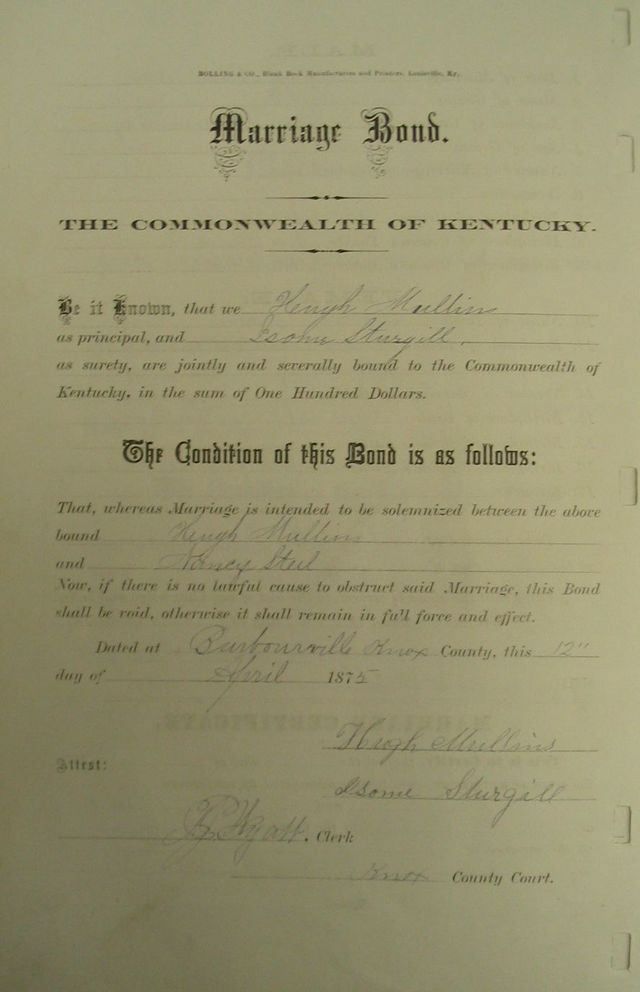 BOLLING & CO., Blank Book Manufacturers and Printers, Louisville, Ky.
Marriage Bond.
THE COMMONWEALTH OF KENTUCKY.
Be it Known, that we Hugh Mullins
as principal, and Isom Sturgill.
as surety, are jointly and severally bound to the Commonwealth of
Kentucky, in the sum of One Hundred Dollars.
The Condition of this Bond is as follows:
That, whereas Marriage is intended to be solemnized between the above
bound Hugh Mullins
and Nancy Steel
Now, if there is no lawful cause to obstruct said Marriage, this Bond
shall be void, otherwise it shall remain in full force and effect.
Dated at Barbourville Knox County, this 12"
day of April 1875
Hugh Mullins
Attest:
Isome Sturgill
Hyatt. Clerk
Knox County Court.